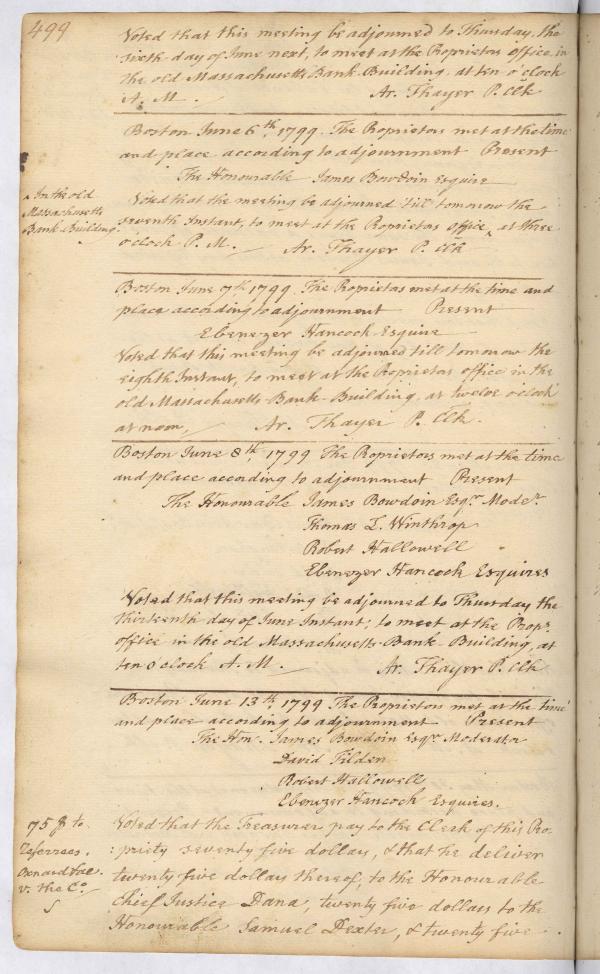 499
Voted that this meeting be adjourned to Thursday, the
sixth day of June next, to meet at the Proprietors Office, in
the old Massachusetts Bank-Building, at ten o'clock
A. M. Ar. Thayer P. Clk
Boston June 6th, 1799. The Proprietors met at the time
and place according to adjournment Present
The Honourable James Bowdoin Esquire
Voted that the meeting be adjourned 'till tomorrow the
seventh Instant, to meet at the Proprietors office ‸ at three
‸ In the old
Massachusetts
Bank-Building.
o'clock P. M. Ar. Thayer P. Clk
Boston June 7th 1799. The Proprietors met at the time and
place according to adjournment Present
Ebenezer Hancock Esquire
Voted that this meeting be adjourned till tomorrow the
eighth Instant, to meet at the Proprietors office in the
old Massachusetts-Bank-Building, at twelve o'clock
at noon, Ar. Thayer P. Clk.
Boston June 8th, 1799 The Proprietors met at the time
and place according to adjournment Present
The Honourable James Bowdoin Esqr. Moder.
Thomas L. Winthrop
Robert Hallowell
Ebenezer Hancock Esquires
Voted that this meeting be adjourned to Thursday the
thirteenth day of June Instant; to meet at the Proprs.
office in the old Massachusetts-Bank-Building, at
ten o'clock A. M. Ar. Thayer P. Clk
Boston June 13th, 1799 The Proprietors met at the time
and place according to adjournment Present
The Hon. James Bowdoin Esqr. Moderator
David Tilden
Robert Hallowell
Ebenezer Hancock Esquires.
75 $ to
Referrees.
v. the Co.
Voted that the Treasurer pay to the Clerk of this Pro-
:priety seventy five dollars, & that he deliver
twenty five dollars thereof, to the Honourable
Chief Justice Dana, twenty five dollars to the
Honourable Samuel Dexter, & twenty five